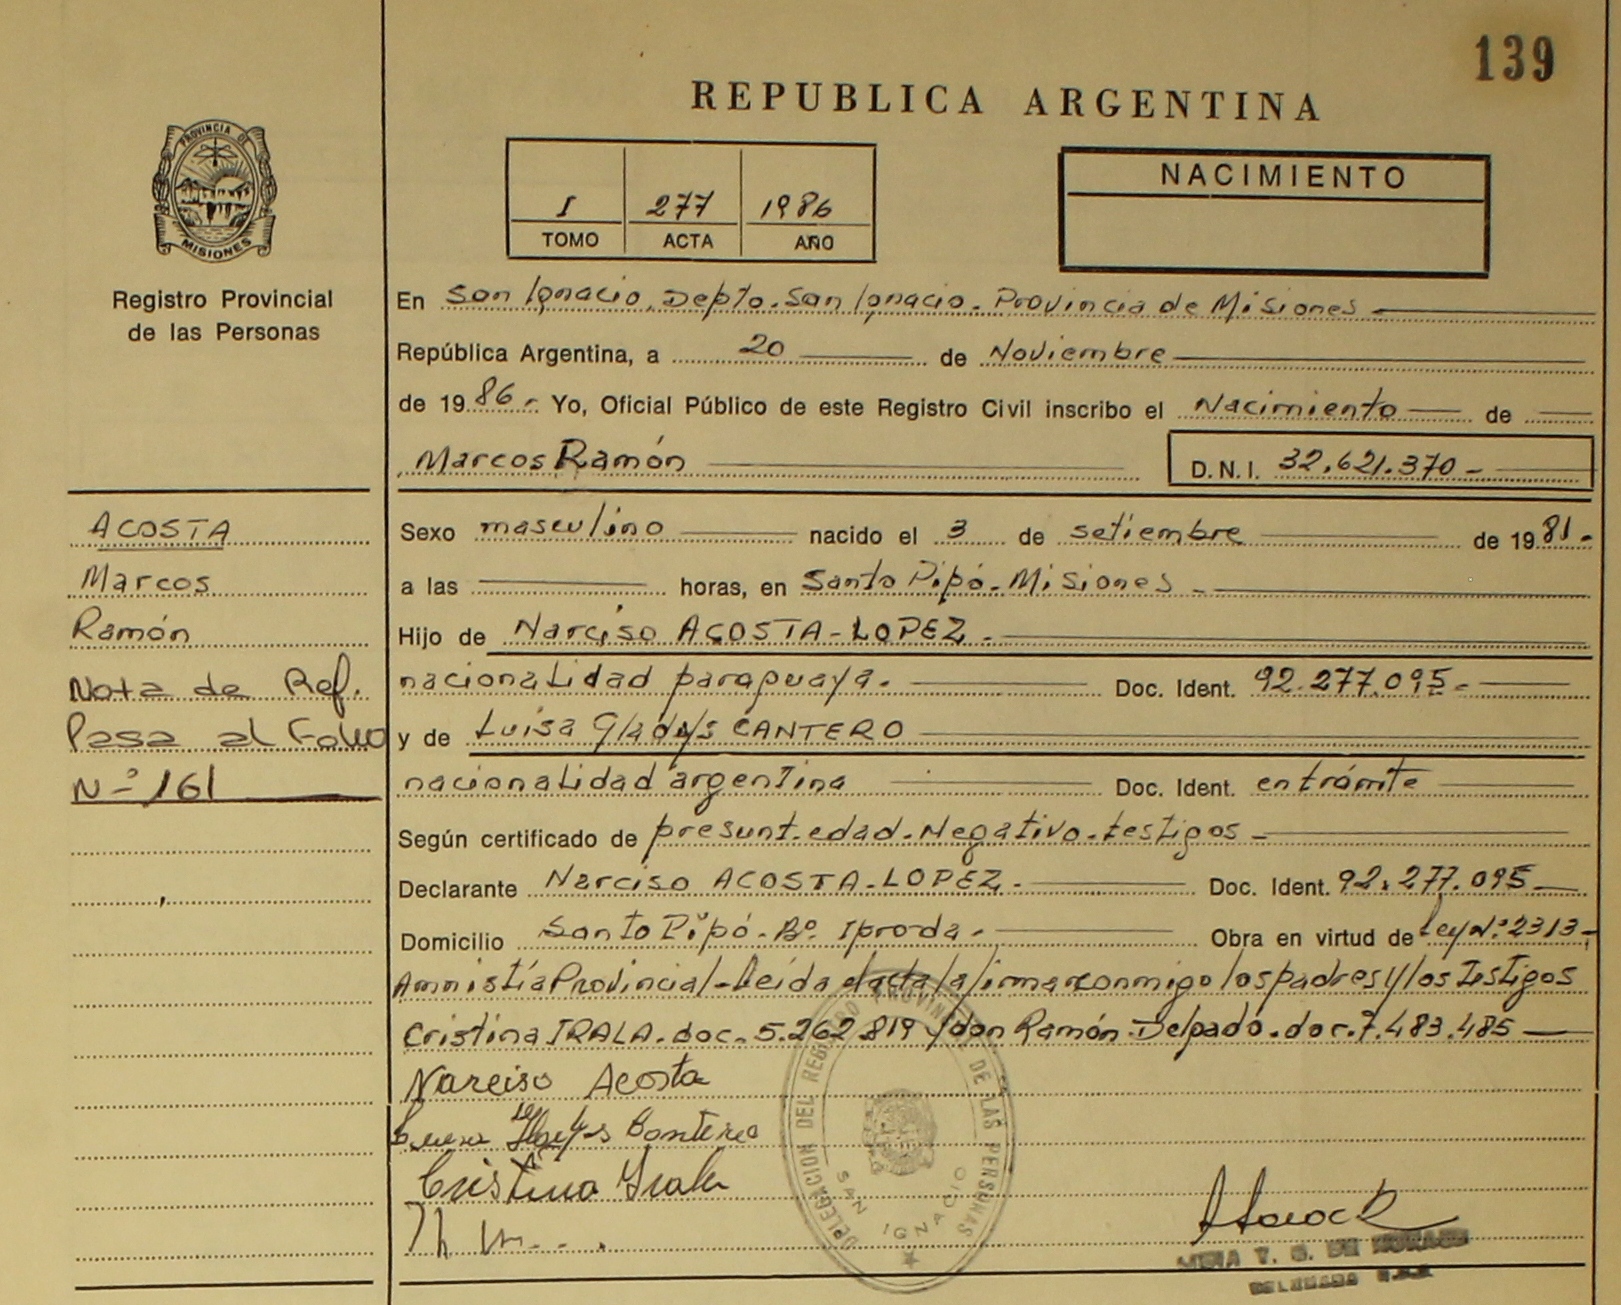 139
REPUBLICA ARGENTINA
PROVINCIA DE
MISIONES
Registro Provincial
de las Personas
I 277 1986
TOMO ACTA AÑO
NACIMIENTO
En San Ignacio, Depto. San Ignacio. Provincia de Misiones
República Argentina, a 20 de Noviembre
de 1986.- Yo, Oficial Público de este Registro Civil inscribo el Nacimiento de
Marcos Ramón
D.N.I. 32.621.370-
ACOSTA
Marcos
Ramón
Nota de Ref.
Pasa al Folio
Nº 161
Sexo masculino nacido el 3 de setiembre de 1981.-
a las horas, en Santo Pipó. Misiones
Hijo de Narciso ACOSTA-LOPEZ.
nacionalidad paraguaya. Doc. Ident. 92.277.095-
y de Luisa Gladys CANTERO
nacionalidad argentina Doc. Ident. en trámite
Según certificado de presunt.edad.Negativo.testigos
Declarante Narciso ACOSTA-LOPEZ. Doc. Ident. 92.277.095
Domicilio Santo Pipó. Bº. Iproda. Obra en virtud de Ley Nº 2313-
Amnistía Provincial-Leída el acta la firman conmigo los padres y los testigos
Cristina IRALA.doc.5.262.819 y don Ramón Delgado.doc.7.483.485
Narciso Acosta
Cantero
Cristina Irala
DELEGACION DEL REGISTRO PROVINCIAL DE LAS PERSONAS
SAN IGNACIO